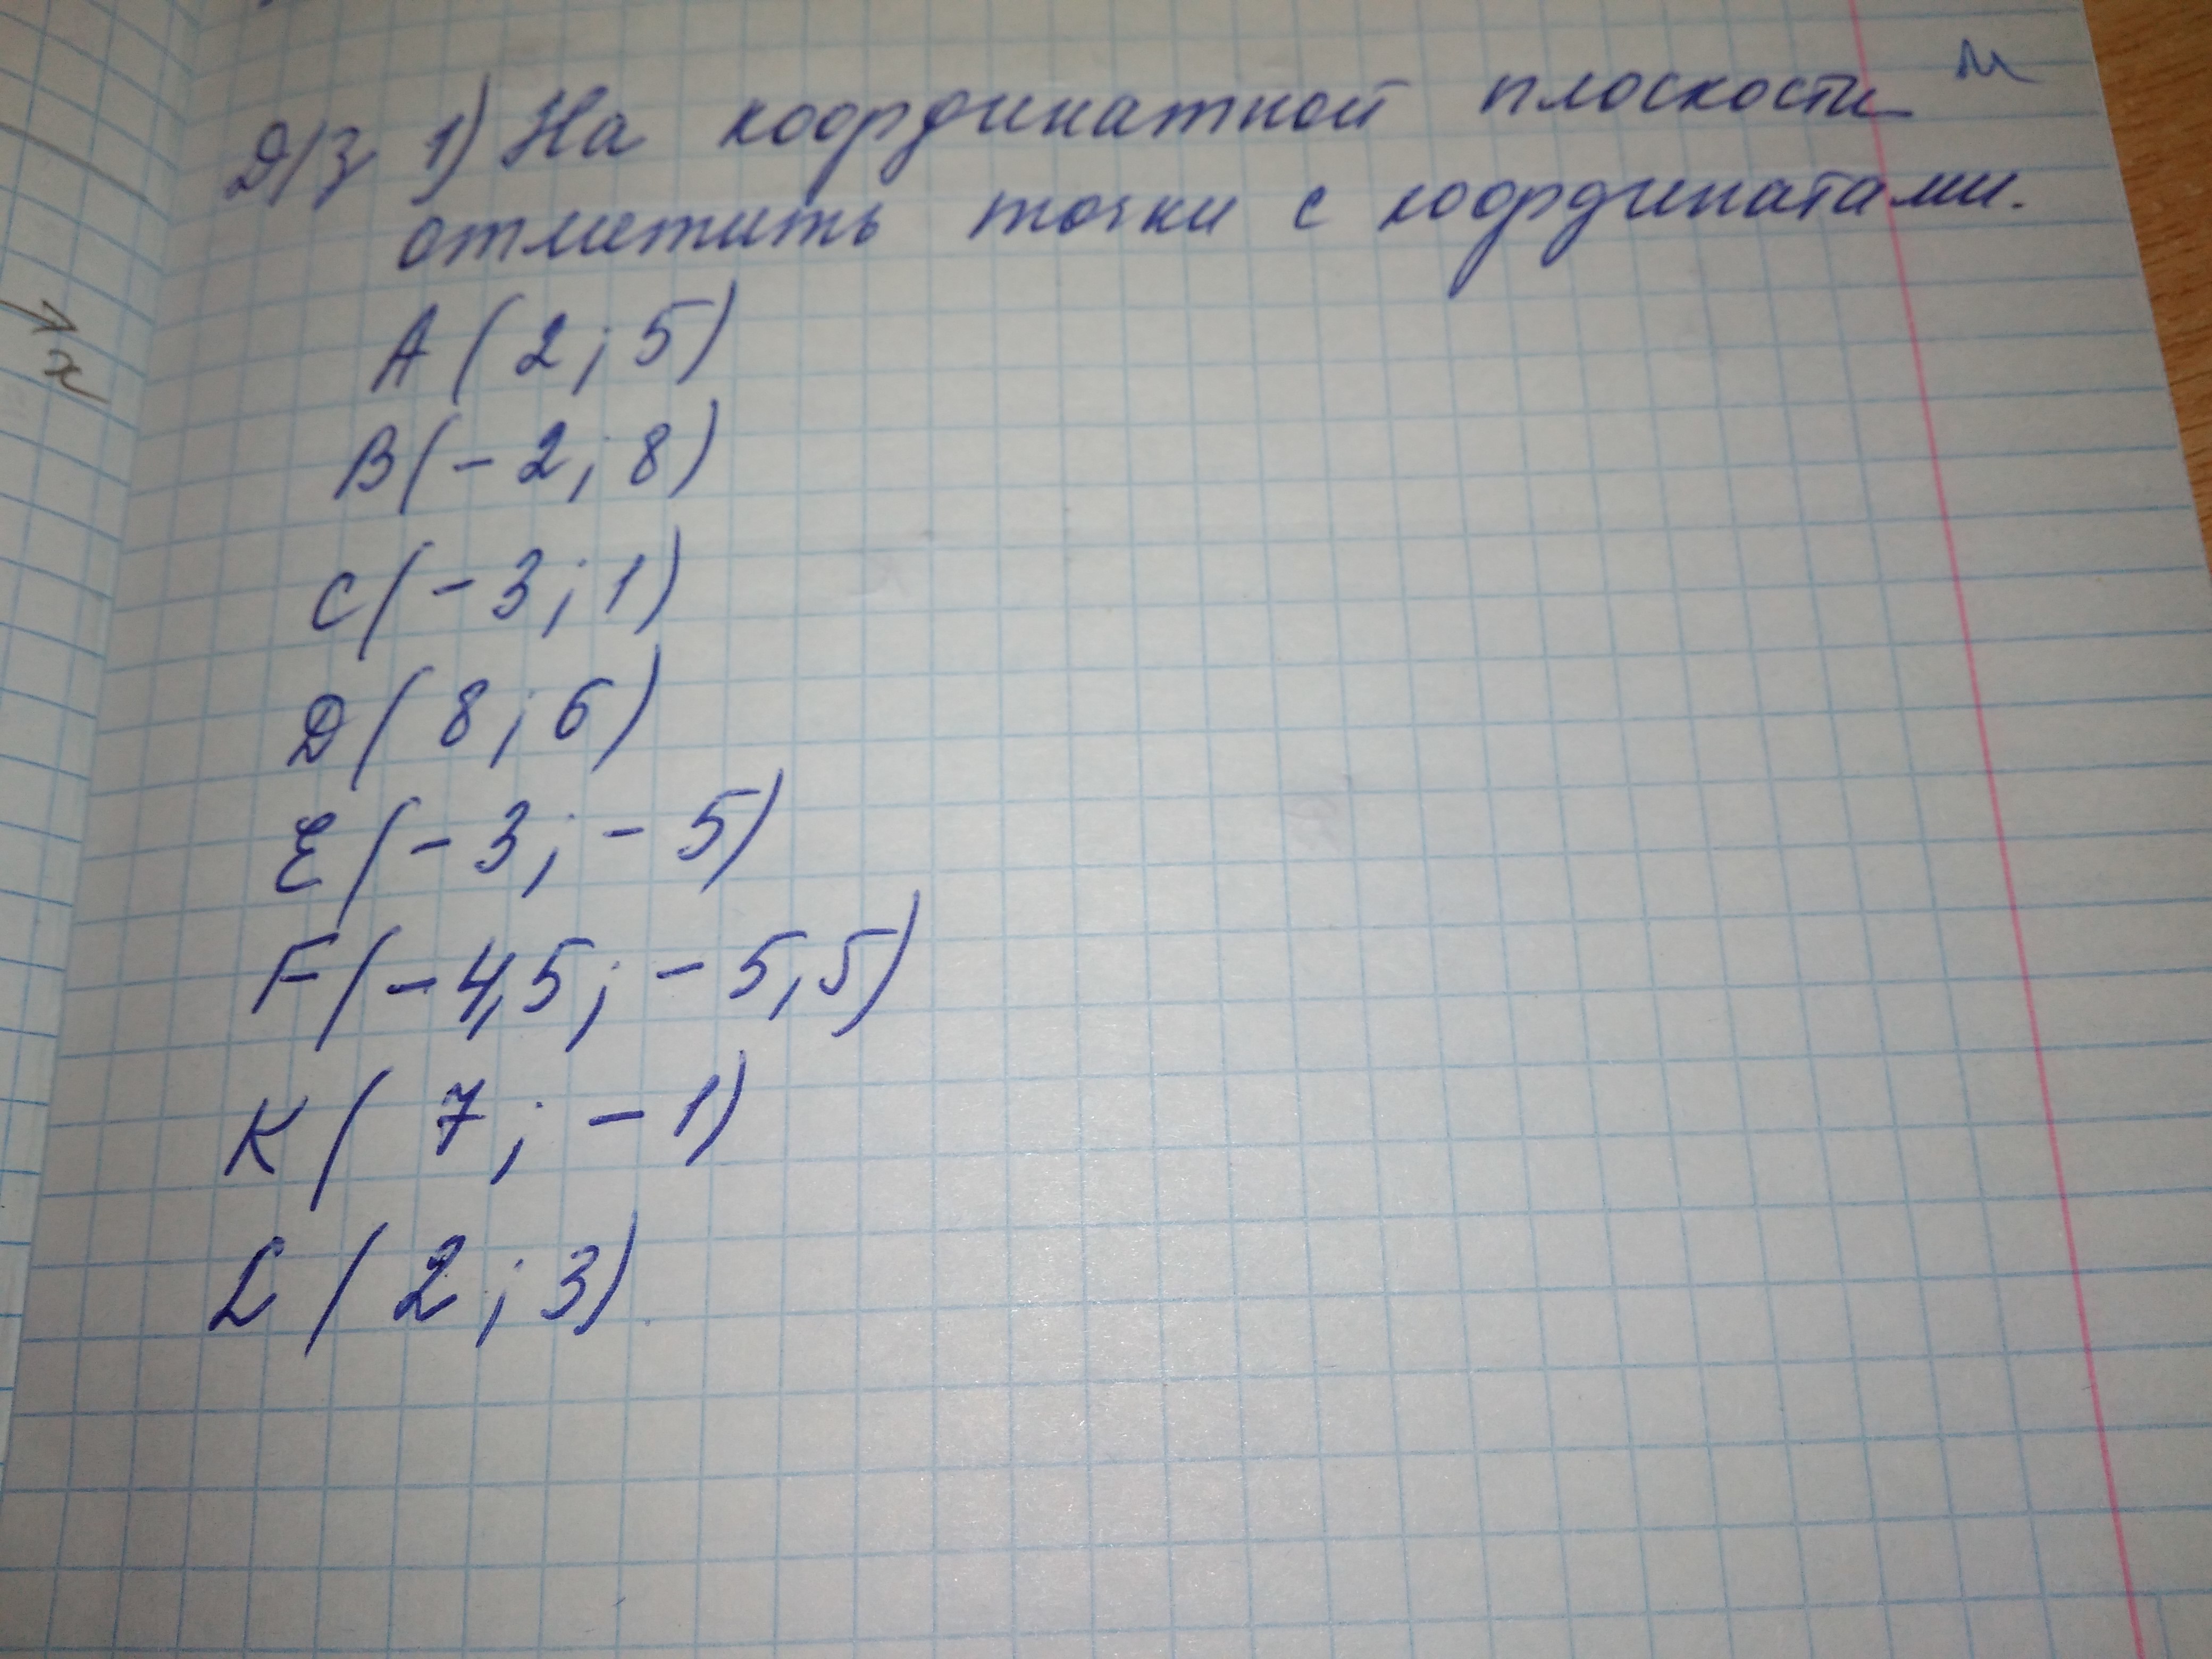 Д/з 1) На координатной плоскости
отметить точки с координатами.
A (2; 5)
B (-2; 8)
C (-3; 1)
D (8; 6)
E (-3; -5)
F (-4,5; -5,5)
K (7; -1)
L (2; 3)
x